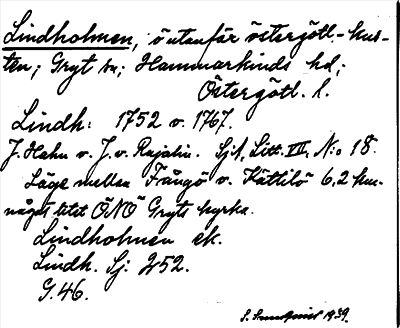 Lindholmen, ö utanför östergötl.-kus-
ten; Gryt sn; Hammarkinds hd;
Östergötl. l.
Lindh: 1752 o. 1767.
J. Hahn o. J. v. Rajalin. Sjk, Litt. VII, N:o 18.
Läge mellan Frångö o. Kättilö 6,2 km.
något litet ÖNÖ Gryts kyrka.
Lindholmen ek.
Lindh. Sj: 252.
G. 46.
S. 1939.